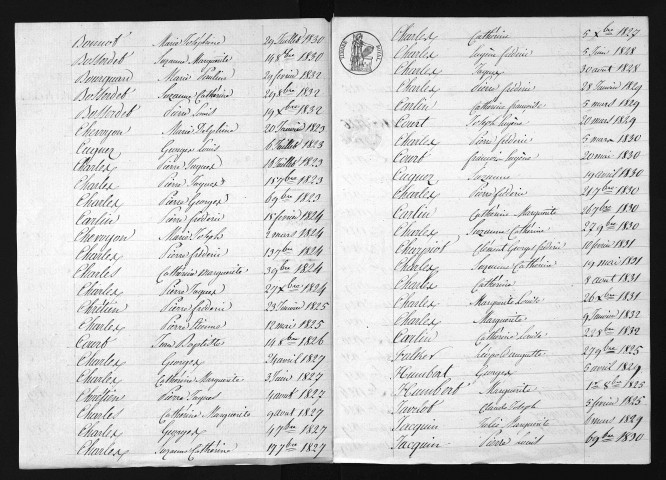 Bonnot Marie Joséphine 29 Juillet 1830
Bossordet Suzanne Marguerite 14 8bre 1830
Bourquard Marie Pauline 20 février 1832
Bossordet Suzanne Catherine 29 8bre 1832
Bossordet Pierre Louis 19 Xbre 1832
Chevoyon Marie Delphine 20 Janvier 1823
Cuquez Georges Louis 6 Juillet 1823
Charles Pierre Jaques 18 Juillet 1823
Charlex Pierre Jaques 15 7bre 1823
Charlex Pierre Georges 6 9bre 1823
Carlin Pierre fréderic 15 février 1824
Chevoyon Marie Joseph 2 mars 1824
Charlex Pierre fréderic 13 7bre 1824
Charles Catherine marguerite 3 9bre 1824
Charlex Pierre Jaques 27 Xbre 1824
Chrétien Pierre fréderic 23 Janvier 1825
Charlex Pierre Etienne 12 mai 1825
Court Jean Baptiste 14 8bre 1826
Charlex Georges 24 avril 1827
Charlex Catherine Marguerite 3 Juin 1827
Chrétien Pierre Jaques 4 aout 1827
Charles Catherine Marguerite 9 aout 1827
Charlex Georges 4 7bre 1827
Charlex Suzanne Catherine 17 7bre 1827
Charlex Catherine 5 Xbre 1827
Charlex Eugène fréderic 5 Juin 1828
Charlex Jaques 30 aout 1828
Charlex Pierre fréderic 28 Janvier 1829
Carlin Catherine françoise 5 mars 1829
Court Joseph Eugène 20 mars 1829
Charlex Pierre fréderic 5 mars 1830
Court françois Eugène 20 mai 1830
Cacquez Suzanne 19 avril 1830
Charlex Pierre fréderic 21 7bre 1830
Carlin Catherine Marguerite 26 7bre 1830
Charlex Suzanne Catherine 27 9bre 1830
Charpiot Clément Georges fréderic 10 février 1831
Charlex Suzanne Catherine 19 mai 1831
Charlex Catherine 8 aout 1831
Charlex Marguerite Louise 26 Xbre 1831
Charlex Marguerite 9 Janvier 1832
Carlin Catherine Louise 22 8bre 1832
Léopold auguste 27 9bre 1825
Humbert Georges 5 avril 1829
Humbert Marguerite 1er 8bre 1825
Claude Joseph 5 février 1825
Jacquin Julie Marguerite 6 mars 1829
Jacquin Pierre Louis 6 9bre 1830